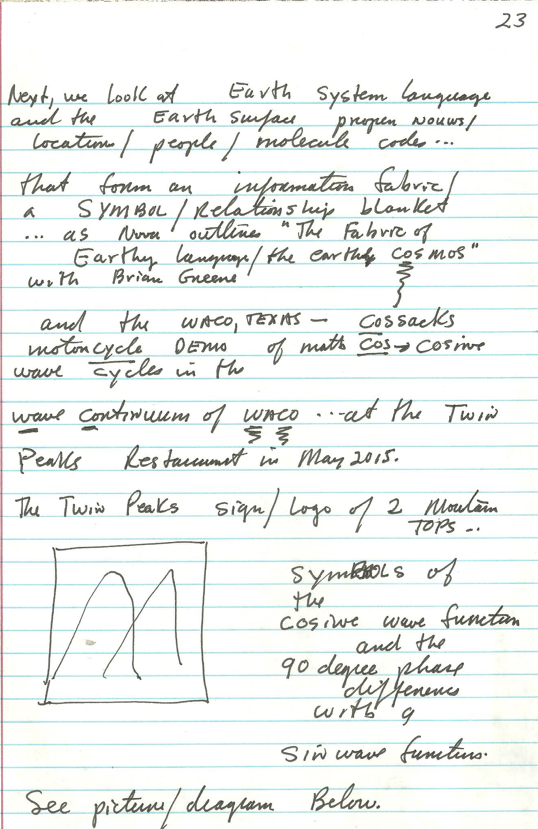 23
Next, we look at Earth System language
and the Earth Surface proper nouns/
location/ people/ molecule codes...
that form an information fabric/
a SYMBOL/Relationship blanket
... as Nova outlines "The Fabric of
Earthy language/the earthy cosmos"
with Brian Greene
and the WACO, TEXAS — Cossacks
motorcycle DEMO of math Cos → Cosine
wave cycles in the
wave continuum of WACO ...at the Twin
Peaks Restaurant in May 2015.
The Twin Peaks sign/Logo of 2 Mountain
TOPS ..
Symbols of
the
cosine wave function
and the
90 degree phase
difference
with a
Sin wave function.
See picture/diagram Below.